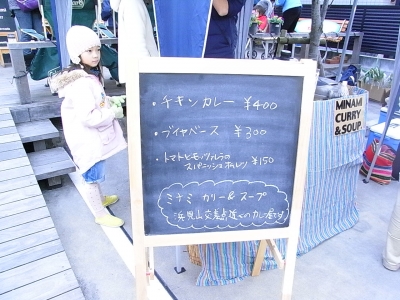 ・チキンカレー ¥400
・ブイヤベース ¥300
・トマトとモッツァレラの
スパニッシュオムレツ ¥150
ミナミ カリー&スープ
浜見山交差点近くのカレー屋です
MINAMI
CURRY
& SOUP